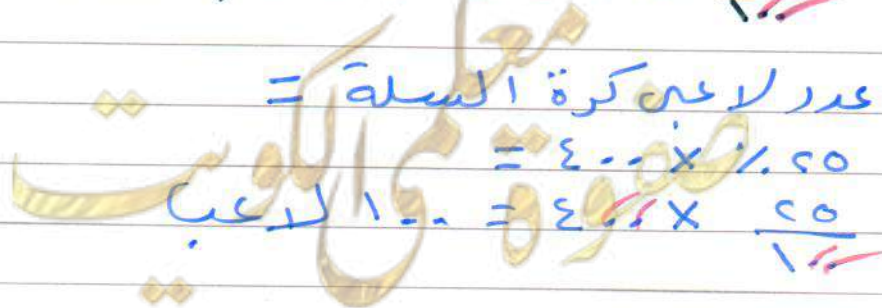 عدد لاعبي كرة السلة =
٢٥٪ × ٤٠٠ =
٢٥/١٠٠ × ٤٠٠ = ١٠٠ لاعب
صفوة معلمي الكويت